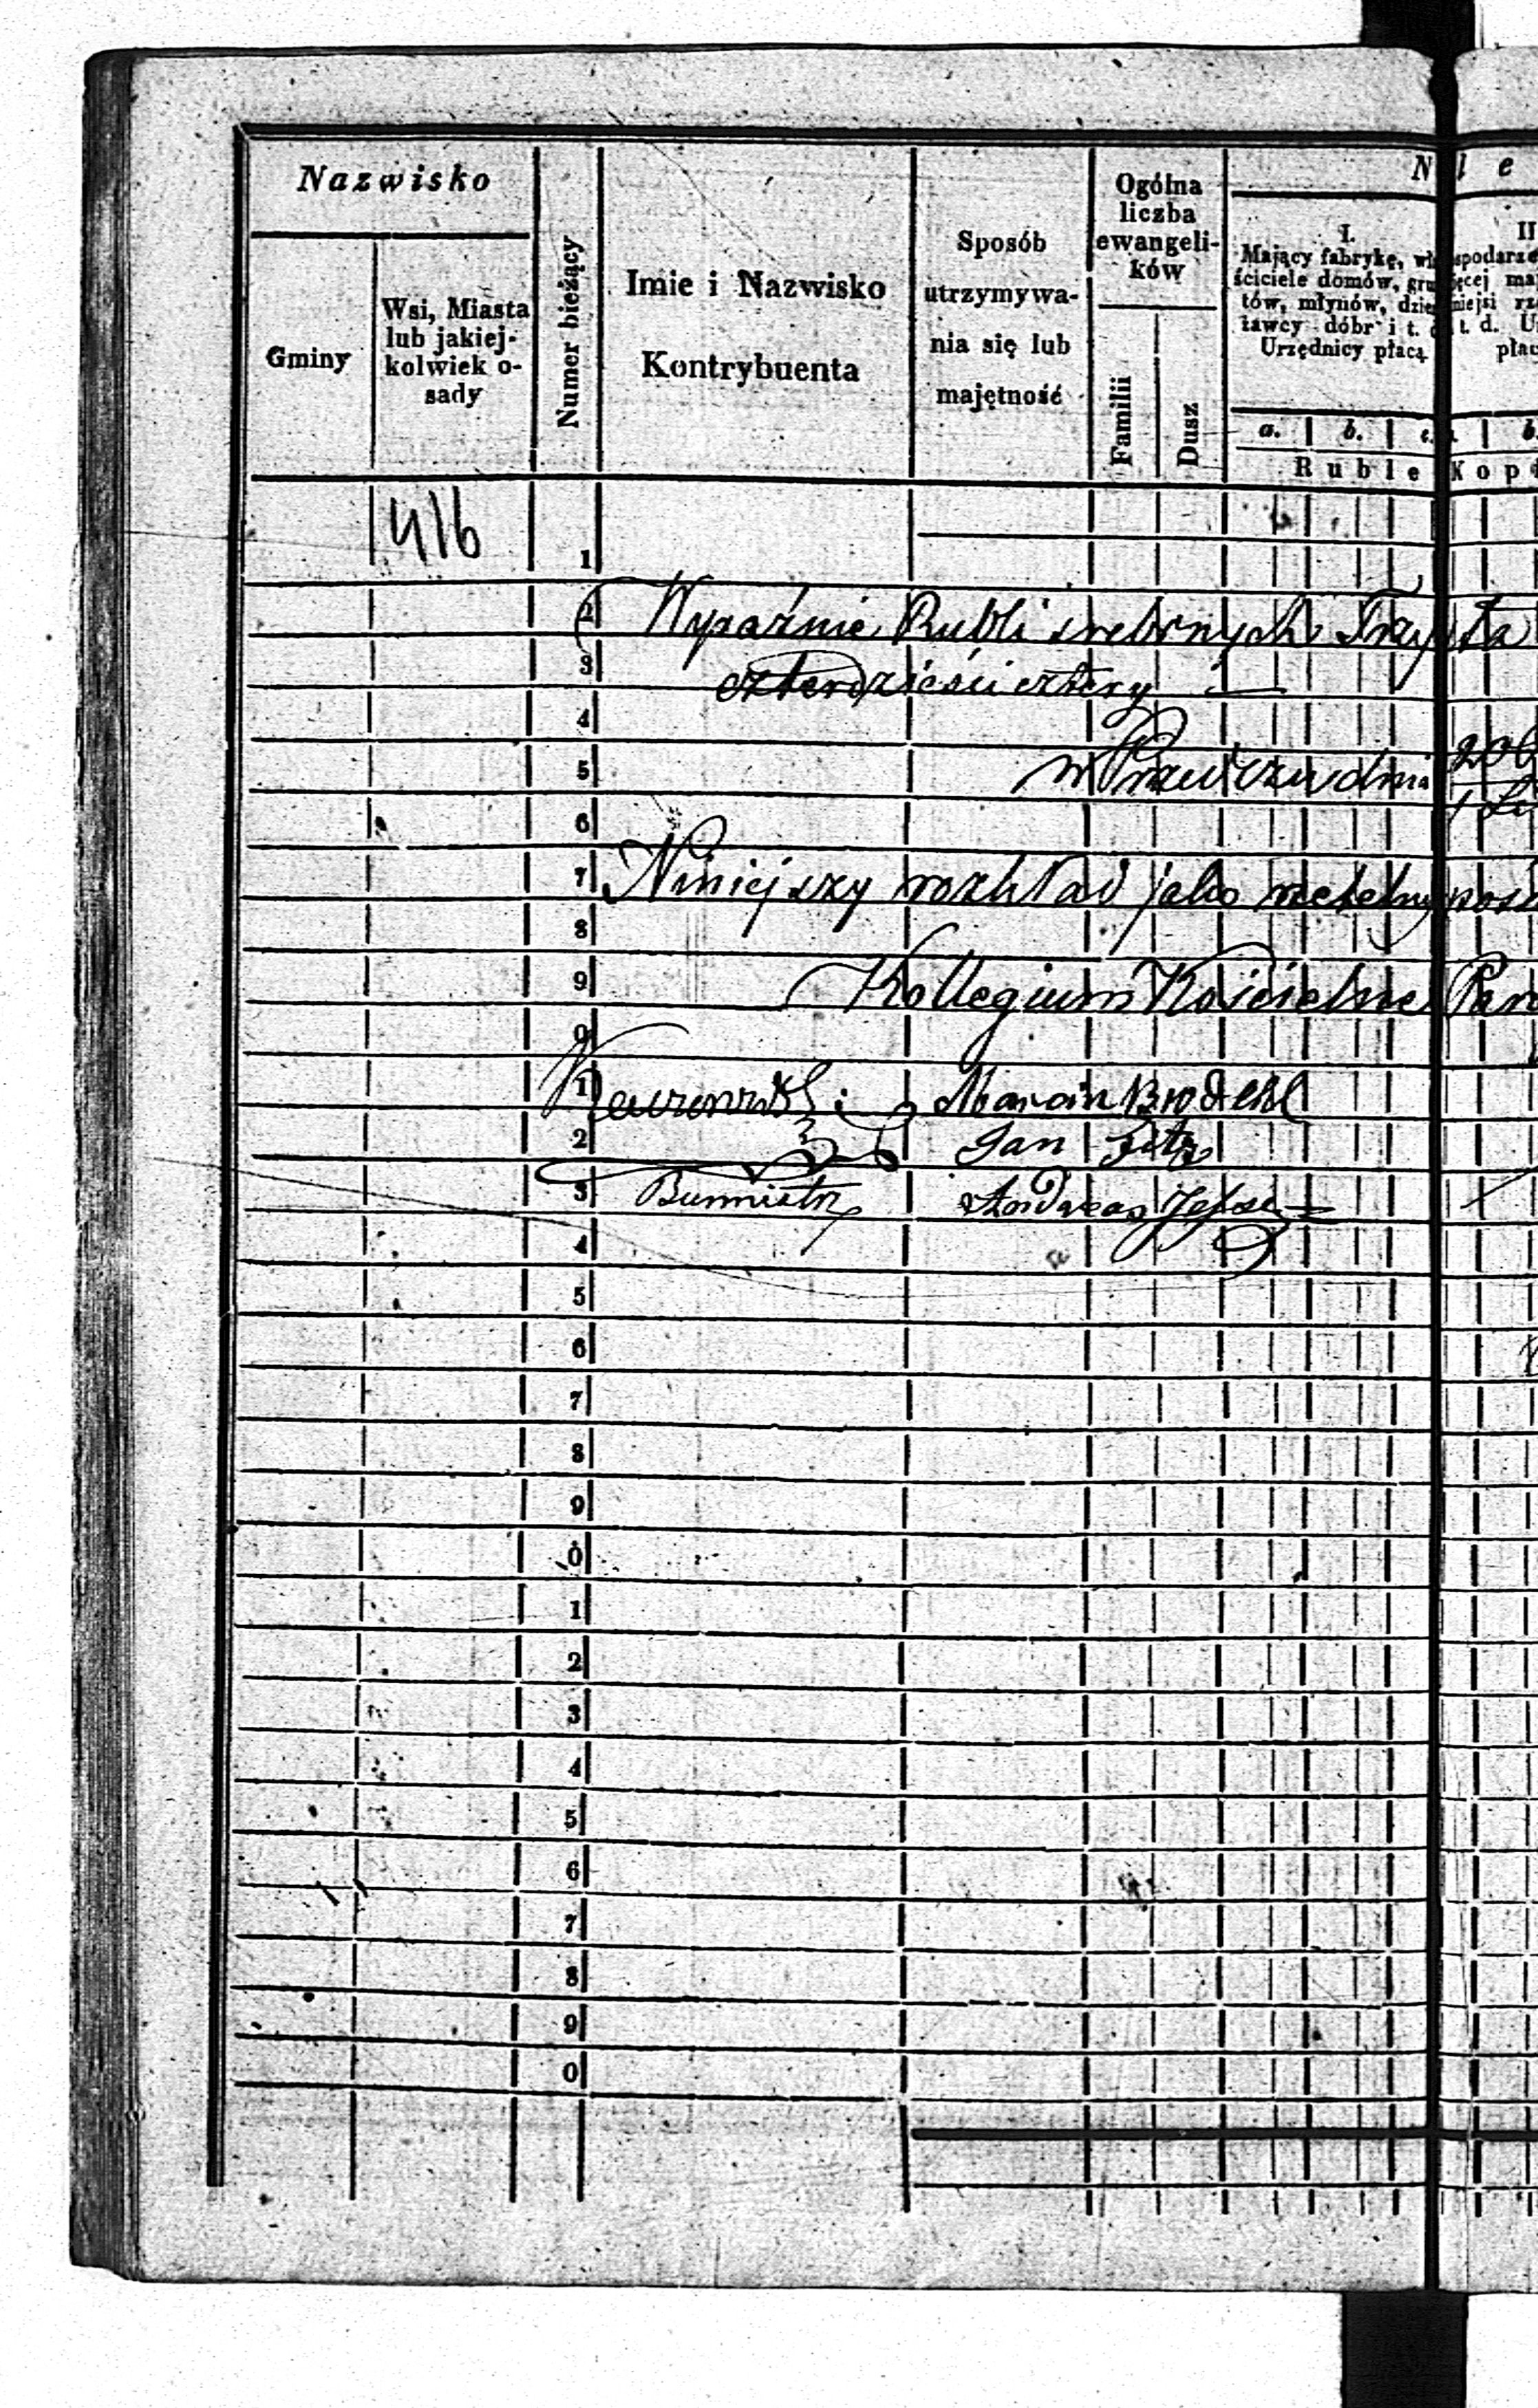 Nazwisko
Gminy
Wsi, Miasta
lub jakiej-
kolwiek o-
sady
Numer bieżący
Imie i Nazwisko
Kontrybuenta
Sposób
utrzymywa-
nia się lub
majętność
Ogólna
liczba
ewangeli-
ków
Familii
Dusz
N l e
I.
Mający fabrykę, wła
ściciele domów, grun
tów, młynów, dzier
ławcy dóbr i t. d.
Urzędnicy płacą
a. b. c.
Ruble
II
spodarze
ęcej ma
niejsi rz
t. d. U
płac
b
Kop
416
1
2 Wyraźnie Rubli srebrnych Trzysta
3 czterdzieści cztery
4
5 w dnia 20
6
7 Niniejszy rozkład jako rzetelny
8
9 Kollegium Kościelne
0
1 Marcin
2 Jan
3 Burmistrz Andreas
4
5
6
7
8
9
0
1
2
3
4
5
6
7
8
9
0